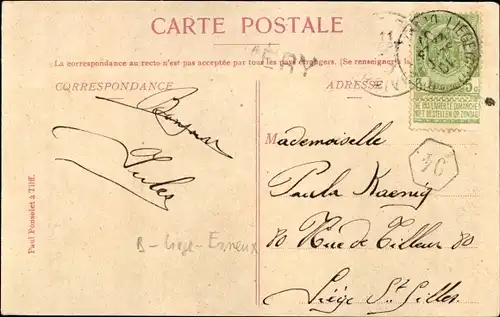 CARTE POSTALE
La correspondance au recto n'est pas acceptée par tous les pays étrangers. (Se renseigner à la
ERY
CORRESPONDANCE
ADRESSE
LIEGE
5c
NE PAS LIVRER LE DIMANCHE
NIET BESTELLEN OP ZONDAG
Bonjour
Jules
Mademoiselle
Paula Kaenig
80 Rue de Tilleur 80
Liége St. Gilles
B - Liege - Esneux
Paul Ponsolet à Tilff.